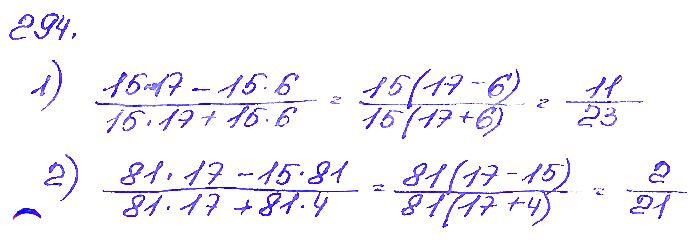 294.
1) (15·17 - 15·6)/(15·17 + 15·6) = 15(17-6)/15(17+6) = 11/23
2) (81·17 - 15·81)/(81·17 + 81·4) = 81(17-15)/81(17+4) = 2/21